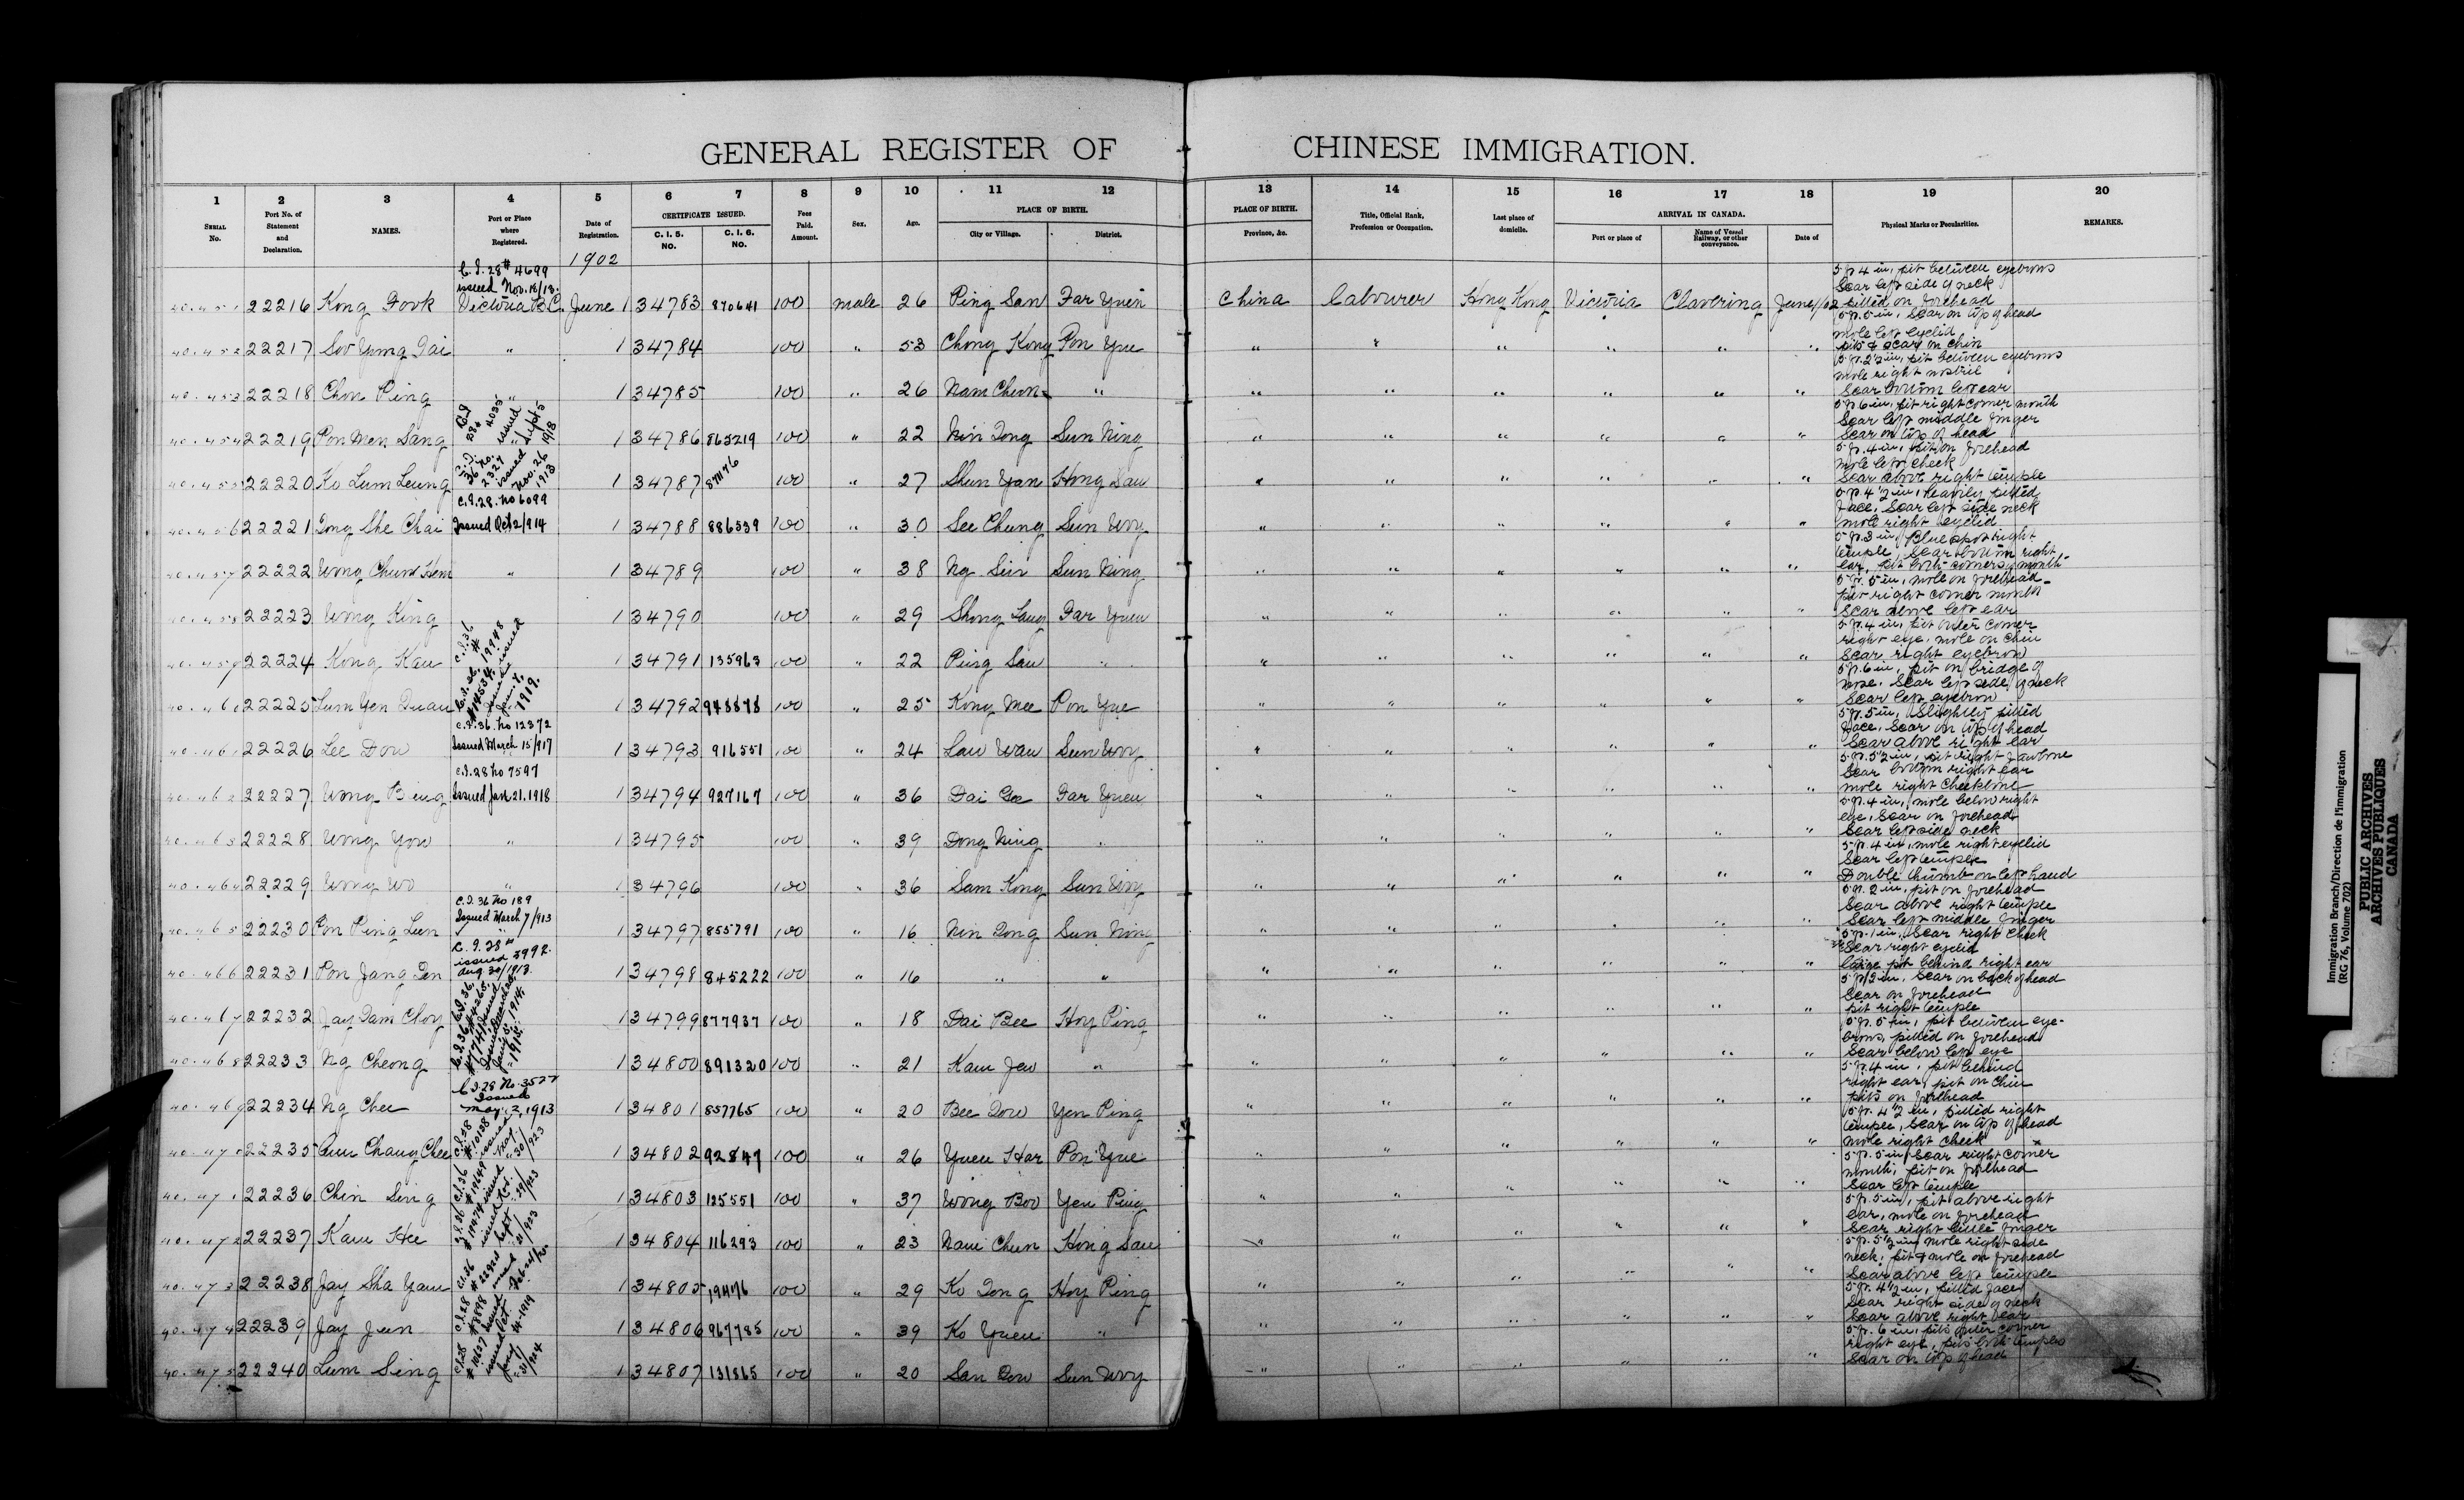 GENERAL REGISTER OF CHINESE IMMIGRATION.
1 2 3 4 5 6 7 8 9 10 11 12 13 14 15 16 17 18 19 20
SERIAL No. Port No. of Statement and Declaration. NAMES. Port or Place where Registered. Date of Registration. CERTIFICATE ISSUED. C. I. 5. No. C. I. 6. No. Fees Paid. Amount. Sex. Age. PLACE OF BIRTH. City or Village. District. PLACE OF BIRTH. Province, &c. Title, Official Rank, Profession or Occupation. Last place of domicile. ARRIVAL IN CANADA. Port or place of Name of Vessel Railway, or other conveyance. Date of Physical Marks or Peculiarities. REMARKS.
1902
C.I. 28 # 4699
issued Nov. 18/13.
40.451 22216 Kong Fook Victoria B.C. June 1 34783 870641 100 male 26 Ping San Far Yuen China Labourer Hong Kong Victoria Clavering June 1/02 5 ft. 4 in, pit between eyebrows Scar left side of neck pitted on forehead
40.452 22217 Soo Yung Tai " 1 34784 100 " 53 Chong Kong Pon Yue " " " " " " 5 ft. 5 in, Scar on top of head mole left eyelid pits & scar on chin
40.453 22218 Chon Ping " 1 34785 100 " 26 Nam Chun " " " " " " " 5 ft. 2½ in, pit between eyebrows mole right nostril Scar bottom left ear
40.454 22219 Pon Men Sang issued Sept 5 1918 1 34786 863219 100 " 22 Nin Dong Sun Ning " " " " " " 5 ft. 6 in, pit right corner mouth Scar left middle finger Scar on top of head
40.455 22220 Ko Lum Leung C.I. 36 No. 2327 issued Nov. 26 1913 1 34787 871176 100 " 27 Shun Yan Hong San " " " " " " 5 ft. 4 in, pit on forehead mole left cheek Scar above right temple
C.I. 28. No 6099
40.456 22221 Dong She Chai Issued Oct 2/914 1 34788 886539 100 " 30 See Chung Sun Woy " " " " " " 5 ft. 4½ in, heavily pitted face, Scar left side neck mole right eyelid
40.457 22222 Wong Chun Hem " 1 34789 100 " 38 Ng Sin Sun Ning " " " " " " 5 ft. 3 in, Blue spot right temple, Scar bottom right ear, pit both corners of mouth
40.458 22223 Wong King 1 34790 100 " 29 Shong Lang Far Yuen " " " " " " 5 ft. 5 in, mole on forehead pit right corner mouth Scar above left ear
40.459 22224 Kong Kau C.I. 36 # 1 34791 135963 100 " 22 Ping San " " " " " " " 5 ft. 4 in, pit outer corner right eye, mole on chin Scar right eyebrow
40.460 22225 Lum Yen Duan 1919. 1 34792 948878 100 " 25 Kong Mee Pon Yue " " " " " " 5 ft. 6 in, pit on bridge of nose, Scar left side of neck Scar left eyebrow
C.I. 36 No 12372
40.461 22226 Lee Dow Issued March 15/917 1 34793 916551 100 " 24 Lau Wan Sun Woy " " " " " " 5 ft. 5 in, Slightly pitted face, Scar on top of head Scar above right ear
C.I. 28 No 7597
40.462 22227 Wong Bing Issued Jan. 21. 1918 1 34794 927167 100 " 36 Dai Gee Far Yuen " " " " " " 5 ft. 5½ in, pit right jawbone Scar bottom right ear mole right cheekbone
40.463 22228 Wong Yow " 1 34795 100 " 39 Dong Ning " " " " " " " 5 ft. 4 in, mole below right eye, Scar on forehead Scar left side neck
40.464 22229 Wong Wo " 1 34796 100 " 36 Sam Kong Sun Woy " " " " " " 5 ft. 4 in, mole right eyelid Scar left temple Double thumb on left hand
C.I. 36 No 189
Issued March 7/913
40.465 22230 Pon Ping Lun " 1 34797 855791 100 " 16 Nin Dong Sun Ning " " " " " " 5 ft. 2 in, pit on forehead Scar above right temple Scar left middle finger
C.I. 28 #
issued 3992.
Aug. 30/1913.
40.466 22231 Pon Jang Den 1 34798 845222 100 " 16 " " " " " " " " 5 ft. 1 in, Scar right cheek Scar right eyelid large pit behind right ear
40.467 22232 Jay Dam Choy C.I. 36. 1914. 1 34799 877937 100 " 18 Dai Bee Hoy Ping " " " " " " Scar on back of head Scar on forehead pit right temple
40.468 22233 Ng Cheong 1914. 1 34800 891320 100 " 21 Kam Jew " " " " " " " 5 ft. 5 in, pit between eyebrows, pitted on forehead Scar below left eye
C.I. 28 No. 3577
Issued
40.469 22234 Ng Chee May 2, 1913 1 34801 857765 100 " 20 Bee Dow Yen Ping " " " " " " 5 ft. 4 in, pit behind right ear, pit on chin pits on forehead
40.470 22235 Chang Chee C.I. 28 # 10138 issued May 30/923 1 34802 92847 100 " 26 Yuen Har Pon Yue " " " " " " 5 ft. 4½ in, pitted right temple, Scar on top of head mole right cheek
40.471 22236 Chin Sing C.I. 36 issued 1 34803 125551 100 " 37 Wong Boo Yen Ping " " " " " " 5 ft. 5 in, Scar right corner mouth, pit on forehead Scar left temple
40.472 22237 Kam Hee C.I. 36 issued Sept. 21/923 1 34804 116293 100 " 23 Nam Chun Hong San " " " " " " 5 ft. 5 in, pit above right ear, mole on forehead Scar right little finger
40.473 22238 Jay Sha Yam C.I. 36 # 22924 issued 1 34805 194176 100 " 29 Ko Dong Hoy Ping " " " " " " 5 ft. 5½ in, mole right side neck, pit & mole on forehead Scar above left temple
40.474 22239 Jay Jun C.I. 28 # 8898 issued Oct. 14-1919 1 34806 967785 100 " 39 Ko Yuen " " " " " " " 5 ft. 4½ in, pitted face, Scar right side of neck Scar above right ear
40.475 22240 Lum Sing C.I. 28 # 10637 issued Jany 31/924 1 34807 131865 100 " 20 San Dow Sun Woy " " " " " " 5 ft. 6 in, pits outer corner right eye, pits both temples Scar on top of head
Immigration Branch/Direction de l'immigration
(RG 76, Volume 702)
PUBLIC ARCHIVES
ARCHIVES PUBLIQUES
CANADA